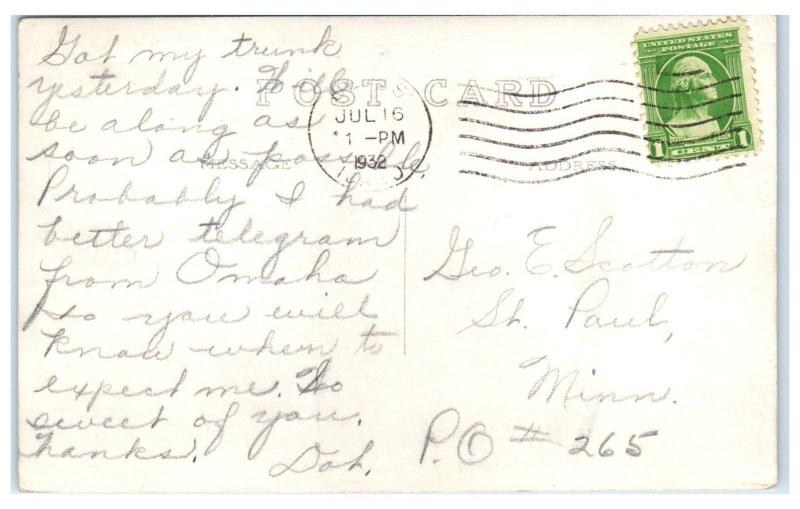 Got my trunk
yesterday. Will
be along as
soon as possible
Probably I had
better telegram
from Omaha
so you will
know when to
expect me. So
sweet of you.
Thanks.
Dot.
POST CARD
MESSAGE
ADDRESS
JUL 16
1 -PM
1932
UNITED STATES
POSTAGE
1 1
Geo. E. Scotton
St. Paul,
Minn.
P.O # 265